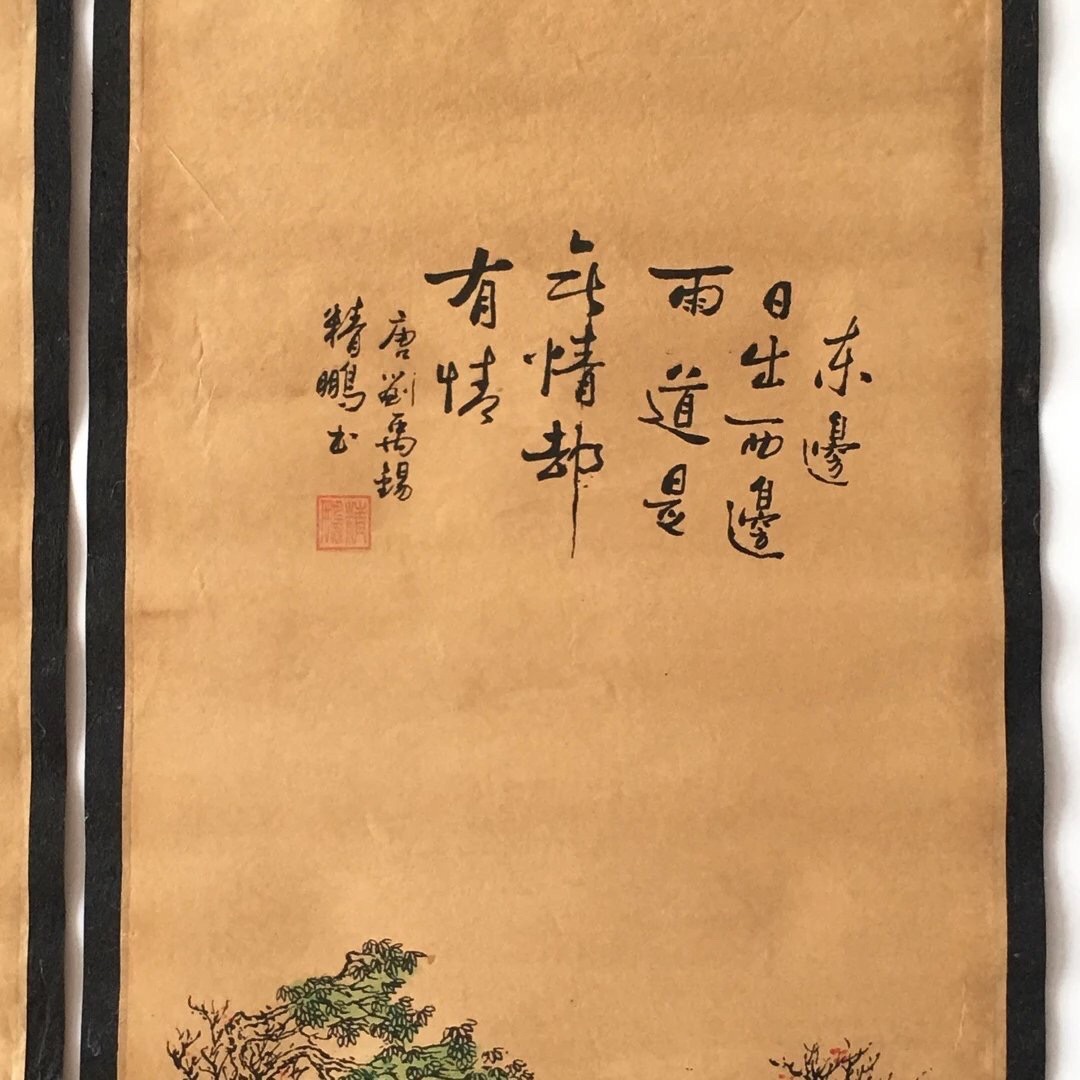 东邊
日出西邊
雨道是
无情却
有情
唐劉禹錫
精鵬书
精鵬